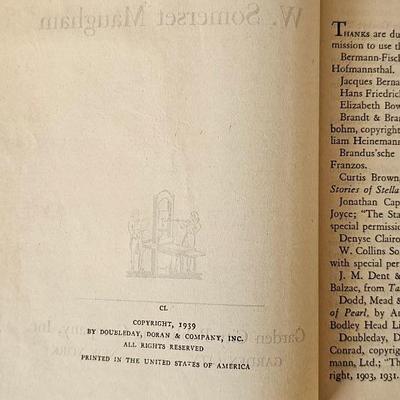 W. Somerset Maugham
CL
COPYRIGHT, 1939
BY DOUBLEDAY, DORAN & COMPANY, INC.
ALL RIGHTS RESERVED
PRINTED IN THE UNITED STATES OF AMERICA
Garden City
Inc.
THANKS are du
mission to use th
Bermann-Fisc
Hofmannsthal.
Jacques Berna
Hans Friedrich
Elizabeth Bow
Brandt & Bran
bohm, copyright
liam Heinemann
Brandus'sche
Franzos.
Curtis Brown,
Stories of Stella
Jonathan Cap
Joyce; "The Sta
special permissi
Denyse Clairo
W. Collins So
with special per
J. M. Dent &
Balzac, from Ta
Dodd, Mead &
of Pearl, by A
Bodley Head Li
Doubleday, D
Conrad, copyrig
mann, Ltd.; "Th
right, 1903, 1931.